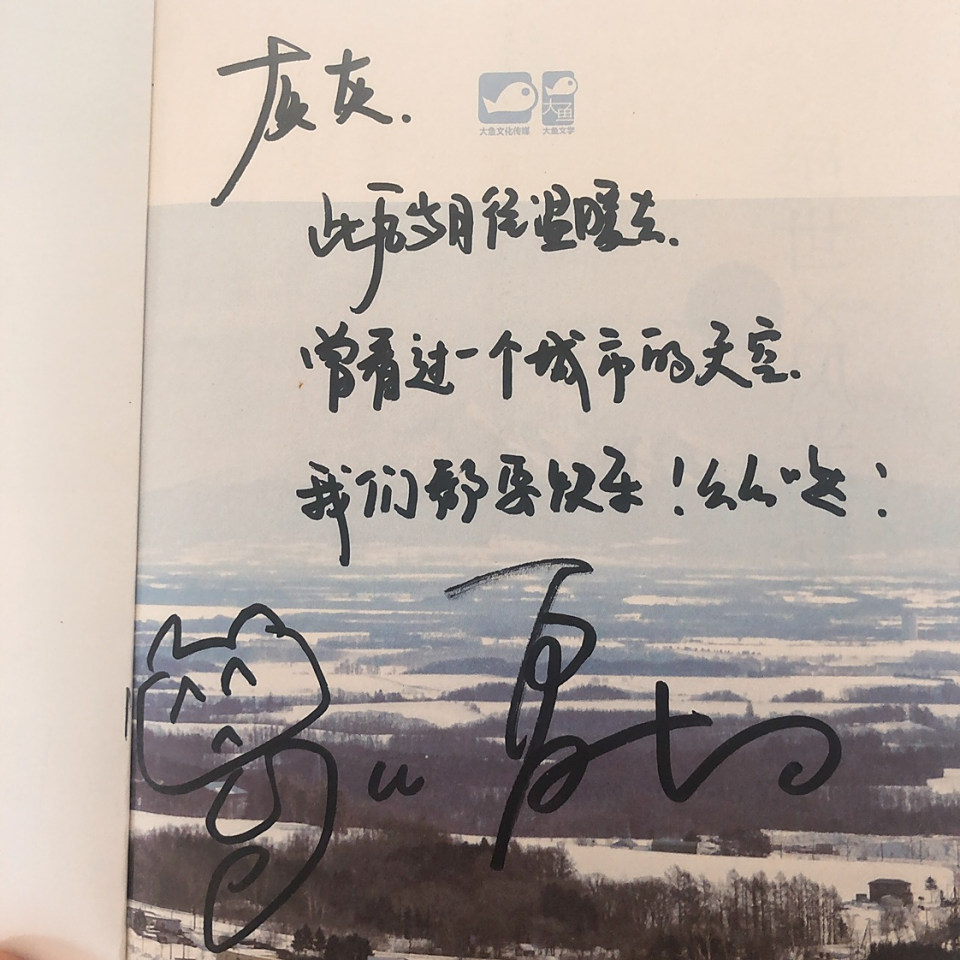 灰灰.
大鱼文化传媒 大鱼文学
大鱼
此后岁月往温暖去.
曾看过一个城市的天空.
我们都要快乐!么么哒!
夏